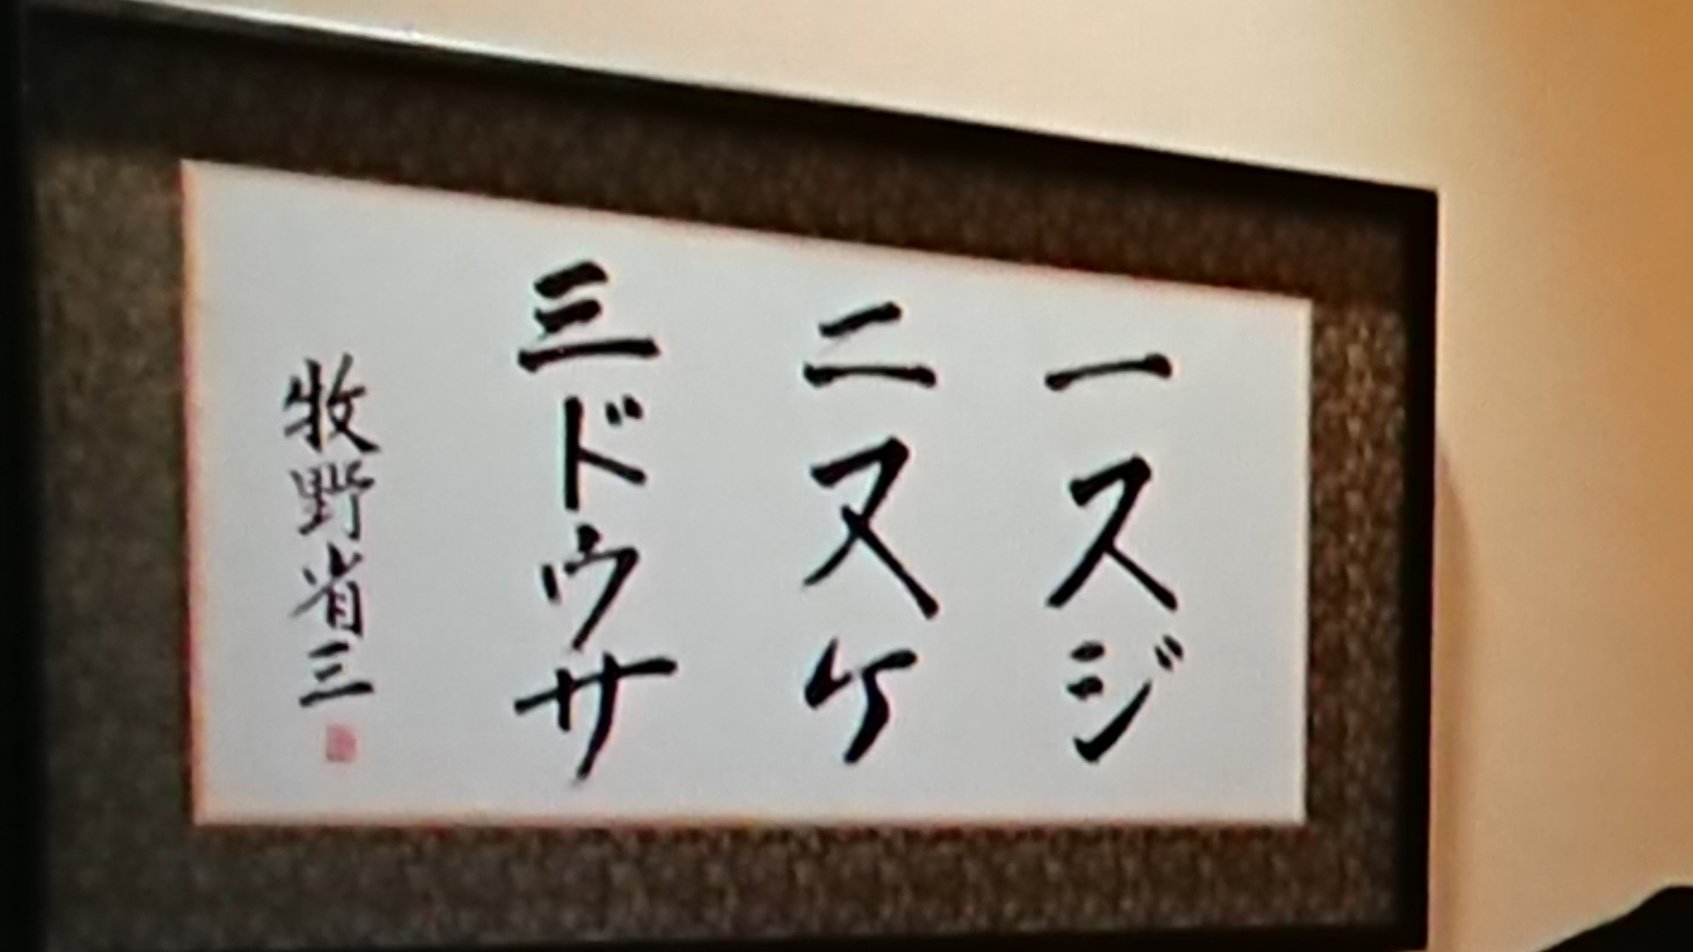 一スジ
二ヌケ
三ドウサ
牧野省三